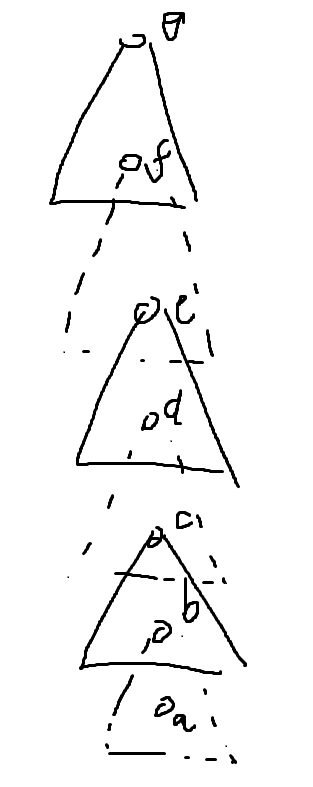 g
f
e
d
c
b
a